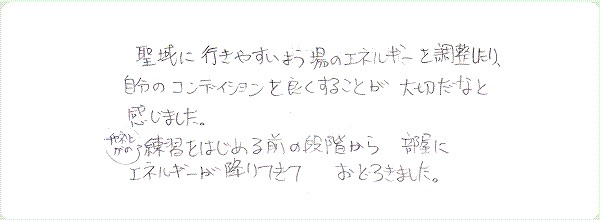 聖域に行きやすいよう場のエネルギーを調整したり、
自分のコンディションを良くすることが大切だなと
感じました。
練習をはじめる前の段階から 部屋に
エネルギーが降りてきて おどろきました。